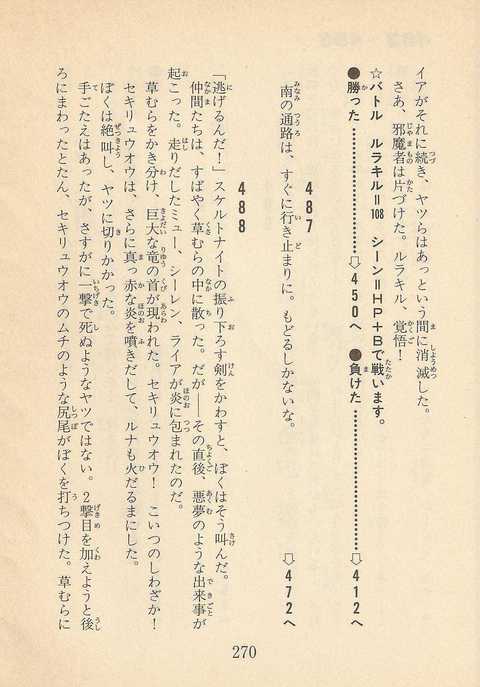 イアがそれに続き、ヤツらはあっという間に消滅した。
さあ、邪魔者は片づけた。ルラキル、覚悟!
☆バトル ルラキル=108 シーン=HP+Bで戦います。
●勝った…………⇨450へ ●負けた…………⇨412へ
487
南の通路は、すぐに行き止まりに。もどるしかないな。
⇨472へ
488
「逃げるんだ!」スケルトナイトの振り下ろす剣をかわすと、ぼくはそう叫んだ。
仲間たちは、すばやく草むらの中に散った。だが──その直後、悪夢のような出来事が
起こった。走りだしたミュー、シーレン、ライアが炎に包まれたのだ。
草むらをかき分け、巨大な竜の首が現われた。セキリュウオウ! こいつのしわざか!
セキリュウオウは、さらに真っ赤な炎を噴きだして、ルナも火だるまにした。
ぼくは絶叫し、ヤツに切りかかった。
手ごたえはあったが、さすがに一撃で死ぬようなヤツではない。2撃目を加えようと後
ろにまわったとたん、セキリュウオウのムチのような尻尾がぼくを打ちつけた。草むらに
270